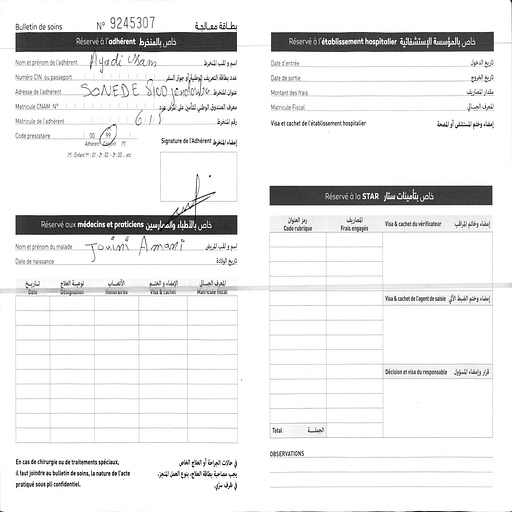 Bulletin de soins N° 9245307 بطاقة معالجة
Réservé à l'adhérent خاص بالمنخرط
Nom et prénom de l'adhérent Ayadi Usam اسم و لقب المنخرط
Numéro CIN ou passeport عدد بطاقة التعريف الوطنية أو جواز السفر
Adresse de l'adhérent SONEDE عنوان المنخرط
Matricule CNAM N°
Matricule de l'adhérent 615 رقم المنخرط
Code prestataire 00 99
Adhérent Conjoint (*)
(*) : Enfant 1er : 01 - 2 : 02 - 3 : 03 ... etc
Signature de l'Adhérent إمضاء المنخرط
Réservé aux médecins et praticiens خاص بالأطباء والممارسين
Nom et prénom du malade Jouini Amani اسم و لقب المريض
Date de naissance تاريخ الولادة
تاريخ نوعية العلاج الأتعاب الإمضاء و الختم المعرف الجبائي
Date Désignation Honoraires Visa & cachet Matricule fiscal
En cas de chirurgie ou de traitements spéciaux,
il faut joindre au bulletin de soins, la nature de l'acte
pratiqué sous pli confidentiel.
في حالات الجراحة أو العلاج الخاص
يجب مصاحبة بطاقة العلاج، بنوع العمل المنجز،
في ظرف سري.
Réservé à l'établissement hospitalier خاص بالمؤسسة الإستشفائية
Date d'entrée تاريخ الدخول
Date de sortie تاريخ الخروج
Montant des frais مقدار المصاريف
Matricule Fiscal المعرف الجبائي
Visa et cachet de l'établissement hospitalier إمضاء وختم المستشفى أو المصحة
Réservé à la STAR خاص بتأمينات ستار
رمز العنوان المصاريف
Code rubrique Frais engagés
Visa & cachet du vérificateur إمضاء وخاتم المراقب
Visa & cachet de l'agent de saisie إمضاء وختم الضبط الآلي
Décision et visa du responsable قرار وإمضاء المسؤول
Total الجملة
OBSERVATIONS